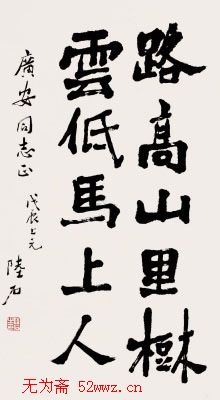 路高山里樹
雲低馬上人
廣安同志正
戊辰上元
陸石
无为斋 52wwz.cn